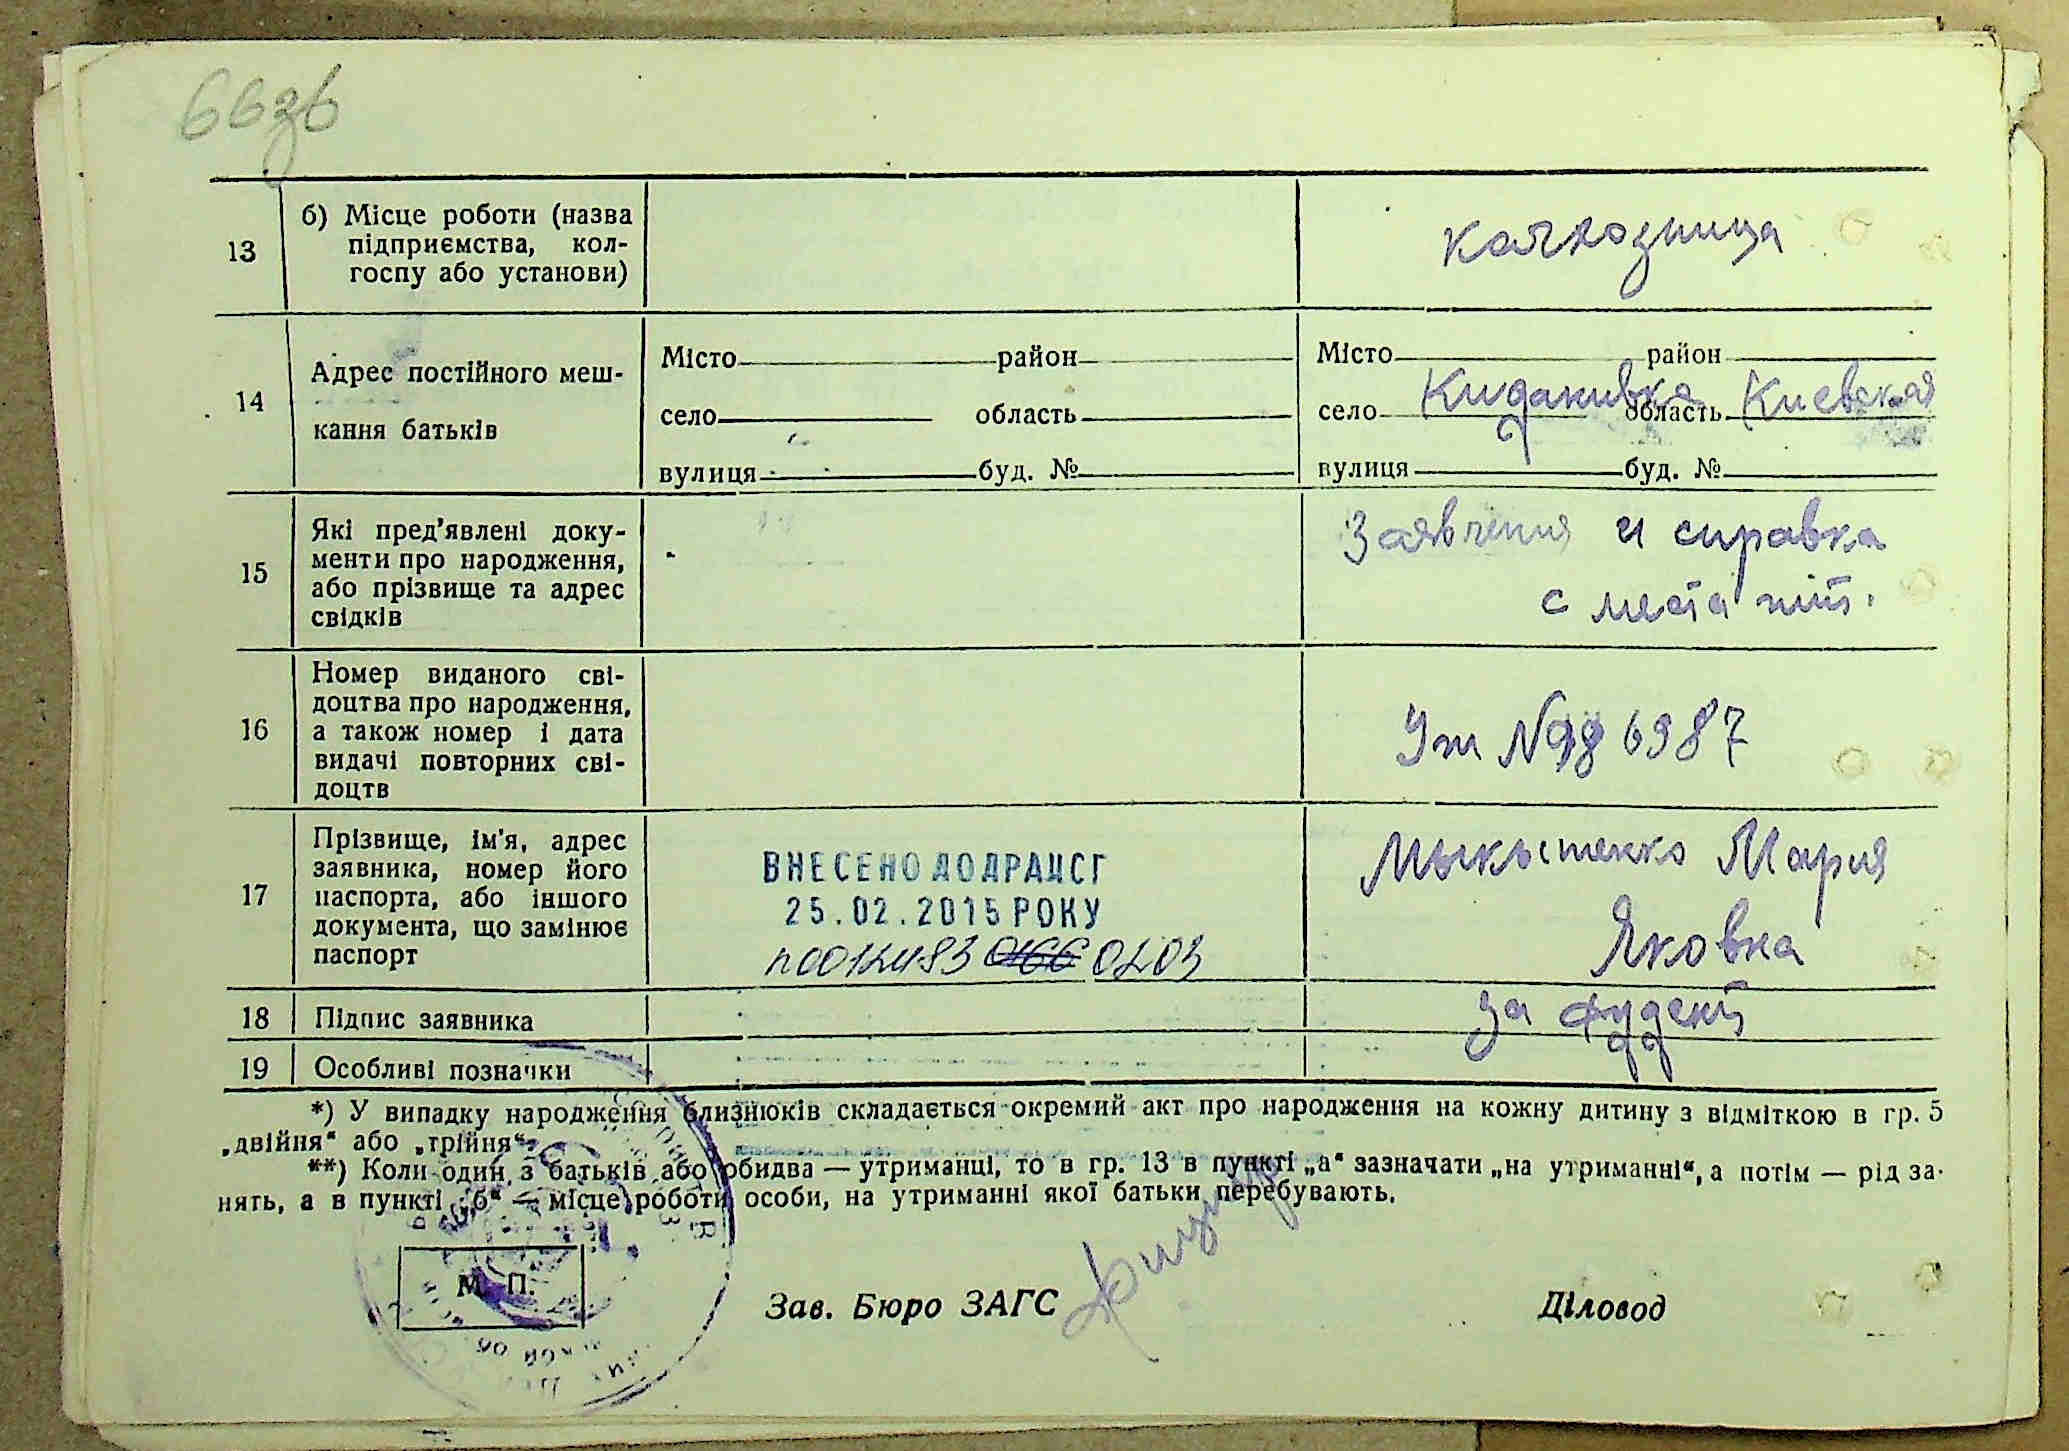 66зв
13
б) Місце роботи (назва
підприємства, кол-
госпу або установи)
колхозница
14
Адрес постійного меш-
кання батьків
Місто район
село область
вулиця буд. №
Місто район
село Кидановка область Киевская
вулиця буд. №
15
Які пред'явлені доку-
менти про народження,
або прізвище та адрес
свідків
Заявления и справка
с места жит.
16
Номер виданого сві-
доцтва про народження,
а також номер і дата
видачі повторних сві-
доцтв
№ 986987
17
Прізвище, ім'я, адрес
заявника, номер його
паспорта, або іншого
документа, що замінює
паспорт
ВНЕСЕНО ДО ДРАЦСГ
25.02.2015 РОКУ
0203
Мыкытенко Мария
Яковка
18
Підпис заявника
за
19
Особливі позначки
*) У випадку народження близнюків складається окремий акт про народження на кожну дитину з відміткою в гр. 5
„двійня“ або „трійня“.
**) Коли один з батьків або обидва — утриманці, то в гр. 13 в пункті „а“ зазначати „на утриманні“, а потім — рід за-
нять, а в пункті „б“ — місце роботи особи, на утриманні якої батьки перебувають.
М. П.
Зав. Бюро ЗАГС
Діловод